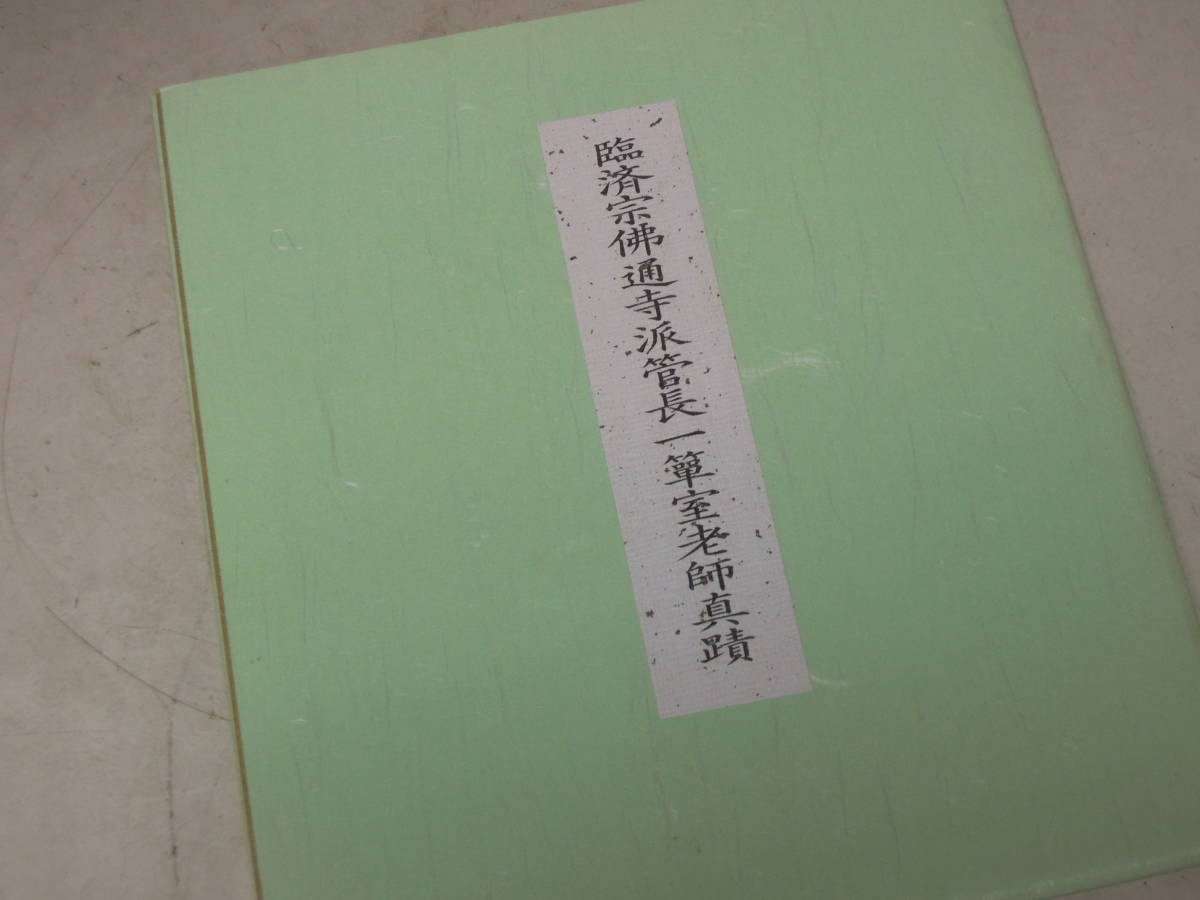 臨済宗佛通寺派管長一箪室老師真蹟